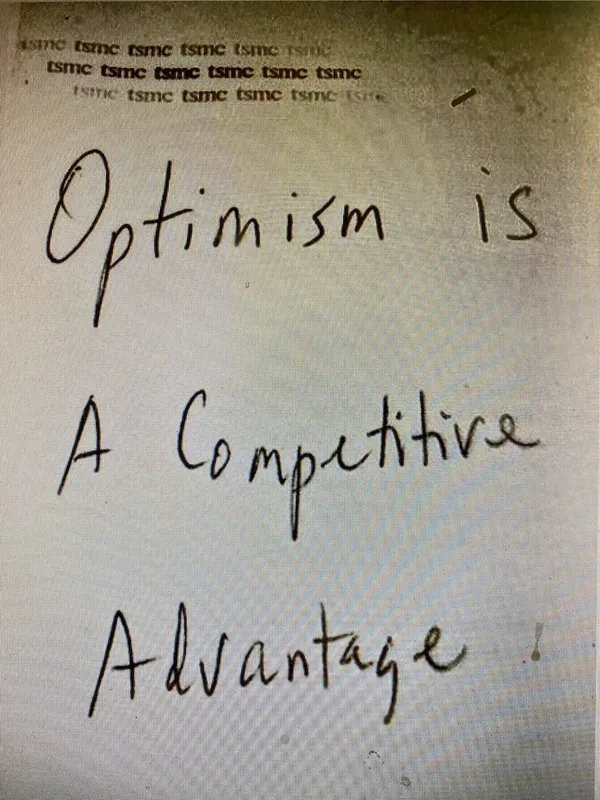 tsmc tsmc tsmc tsmc tsmc tsmc
tsmc tsmc tsmc tsmc tsmc tsmc
tsmc tsmc tsmc tsmc tsmc tsmc
Optimism is
A Competitive
Advantage